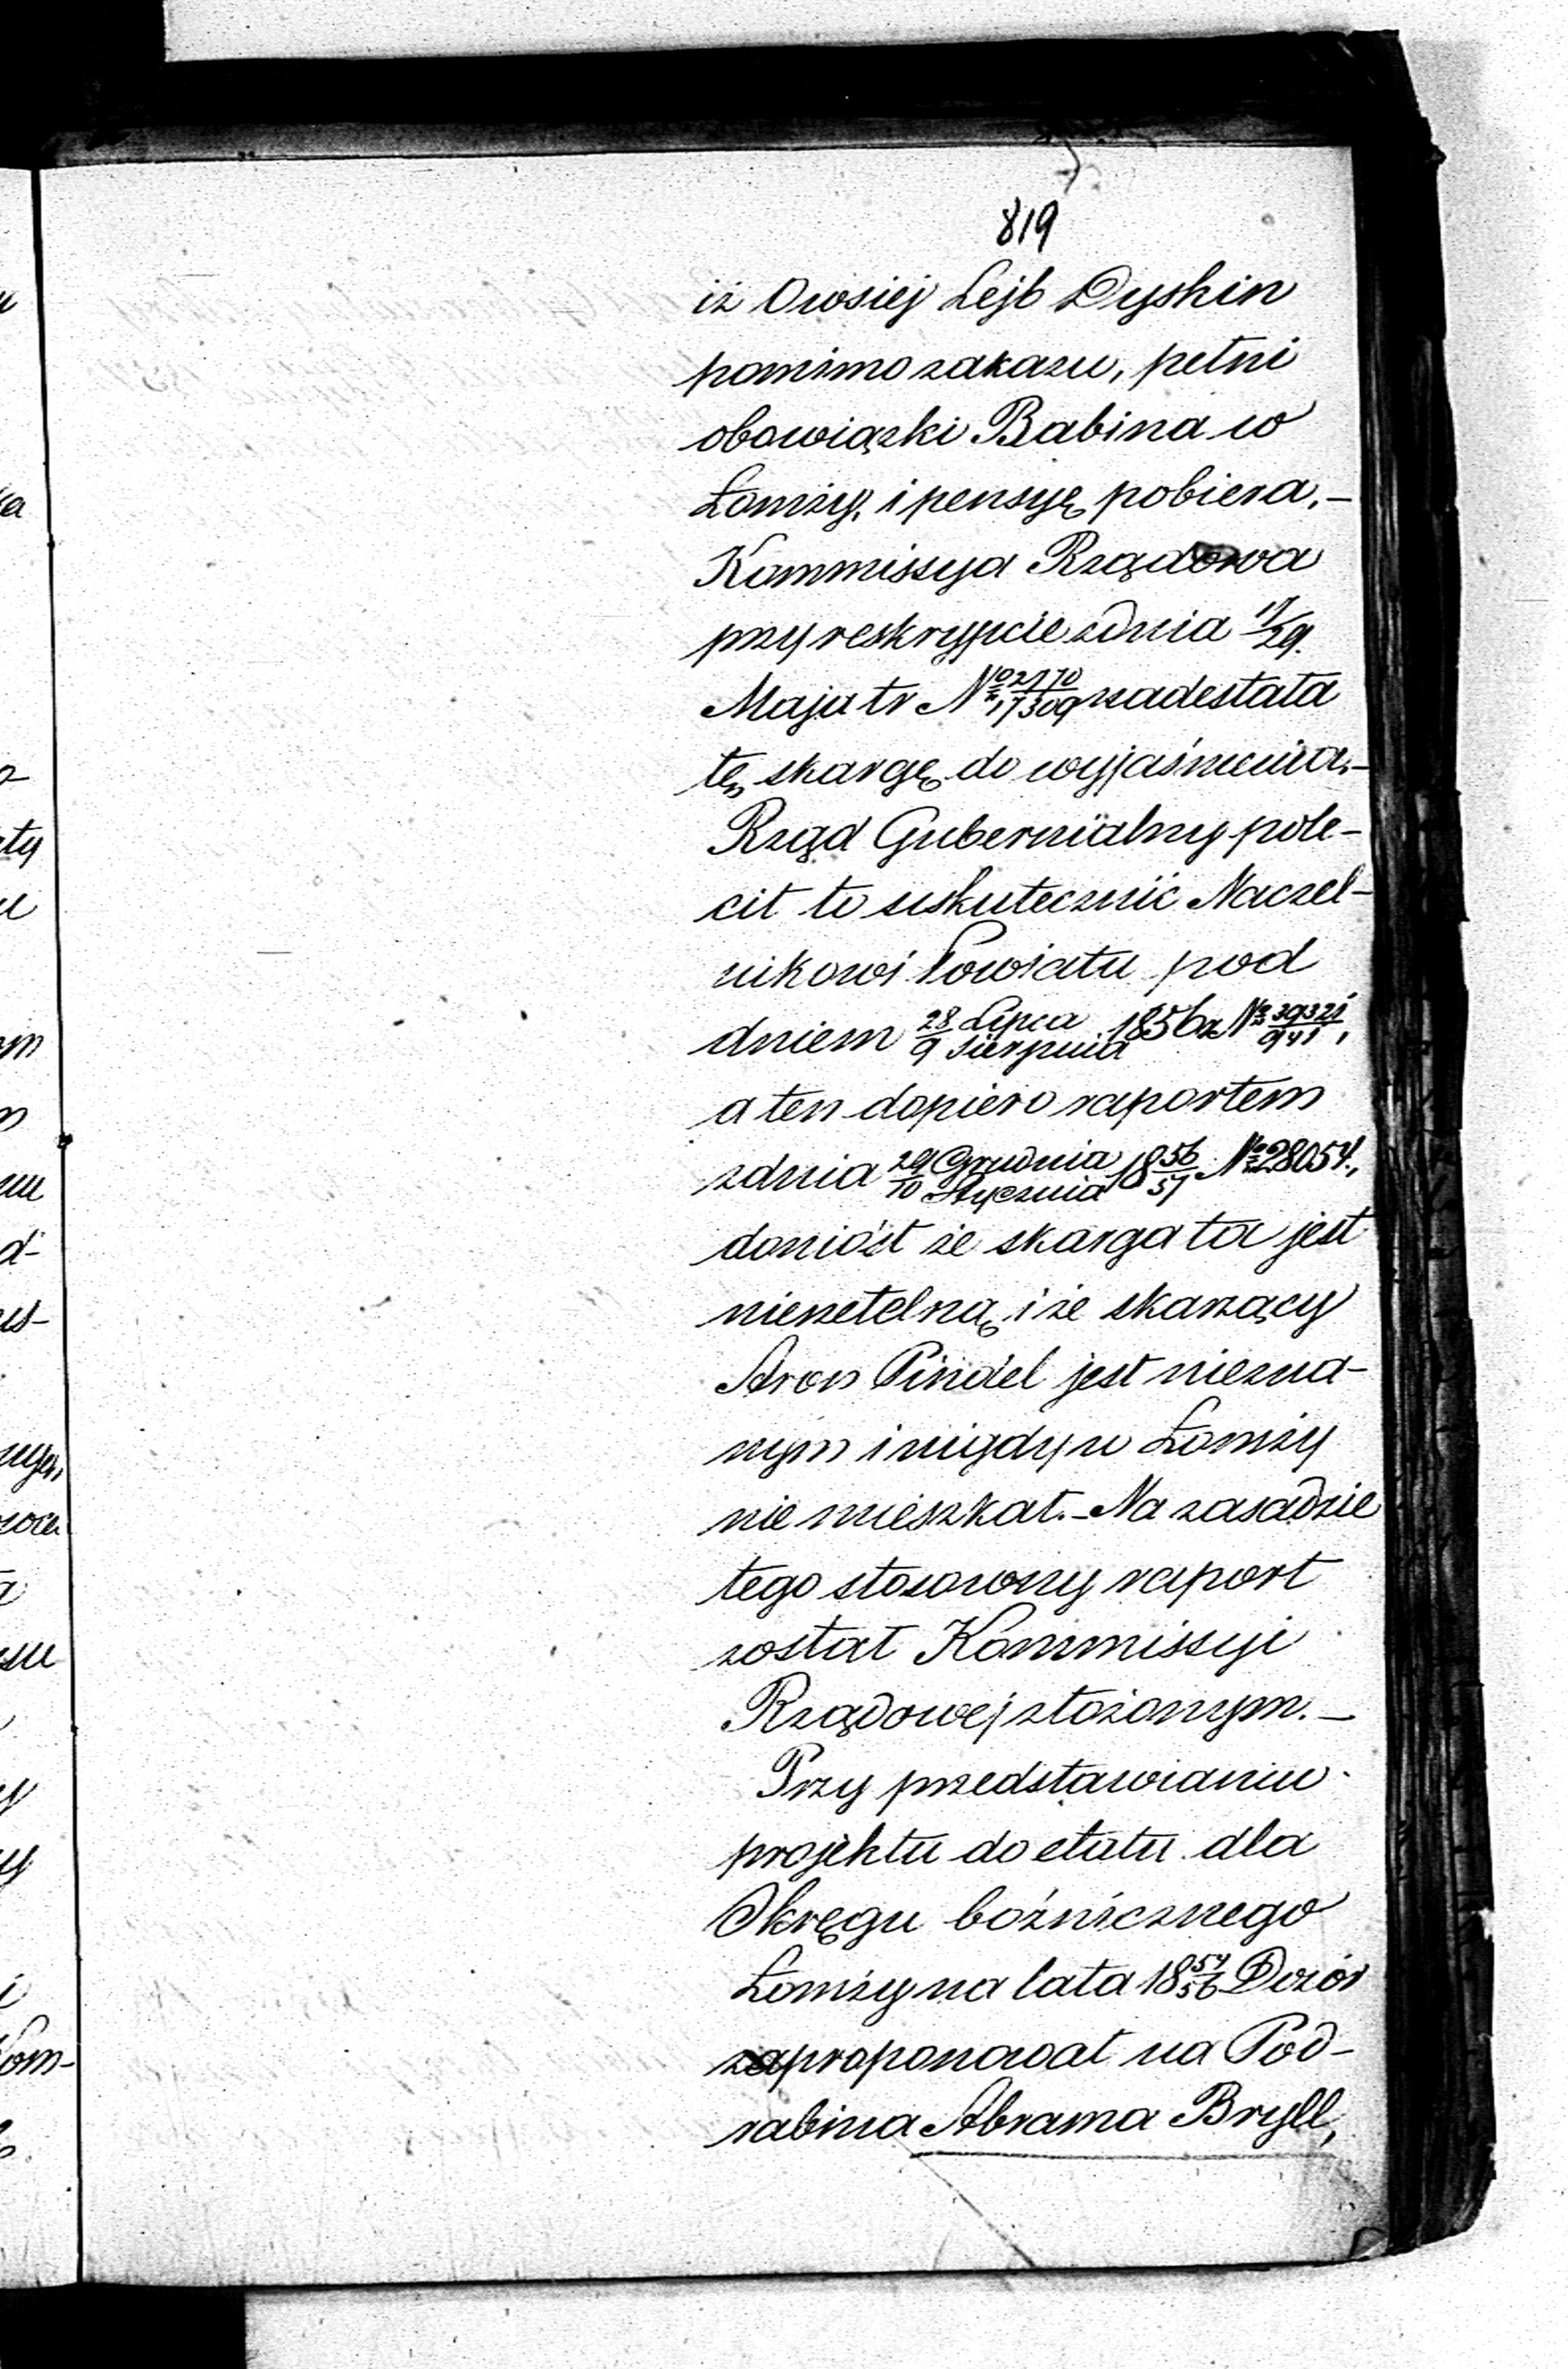 819
iż Owsiej Lejb Dyskin
pomimo zakazu, pełni
obowiązki Rabina w
Łomży, i pensyę pobiera.—
Kommissya Rządowa
przy reskrypcie z dnia 17/29.
Maja tr № 2170/17309 nadesłała
tę skargę do wyjaśnienia.—
Rząd Gubernialny pole-
cił to uskutecznić Naczel-
nikowi Powiatu pod
dniem 28 Lipca/9 Sierpnia 1856 r № 39321/941,
a ten dopiero raportem
z dnia 29 Grudnia/10 Stycznia 1856/57 № 28054.,
doniósł że skarga ta jest
nierzetelną, i że skarzący
Aron Pindel jest niezna-
nym i nigdy w Łomży
nie mieszkał.— Na zasadzie
tego stosowny raport
został Kommissyi
Rządowej złożonym.—
Przy przedstawianiu
projektu do etatu dla
Okręgu bożnicznego
Łomży na lata 1854/56 Dozór
zaproponował na Pod-
rabina Abrama Bryll,